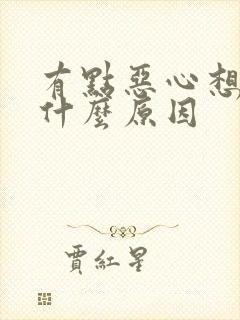 有點惡心想
什麼原因
賈紅星